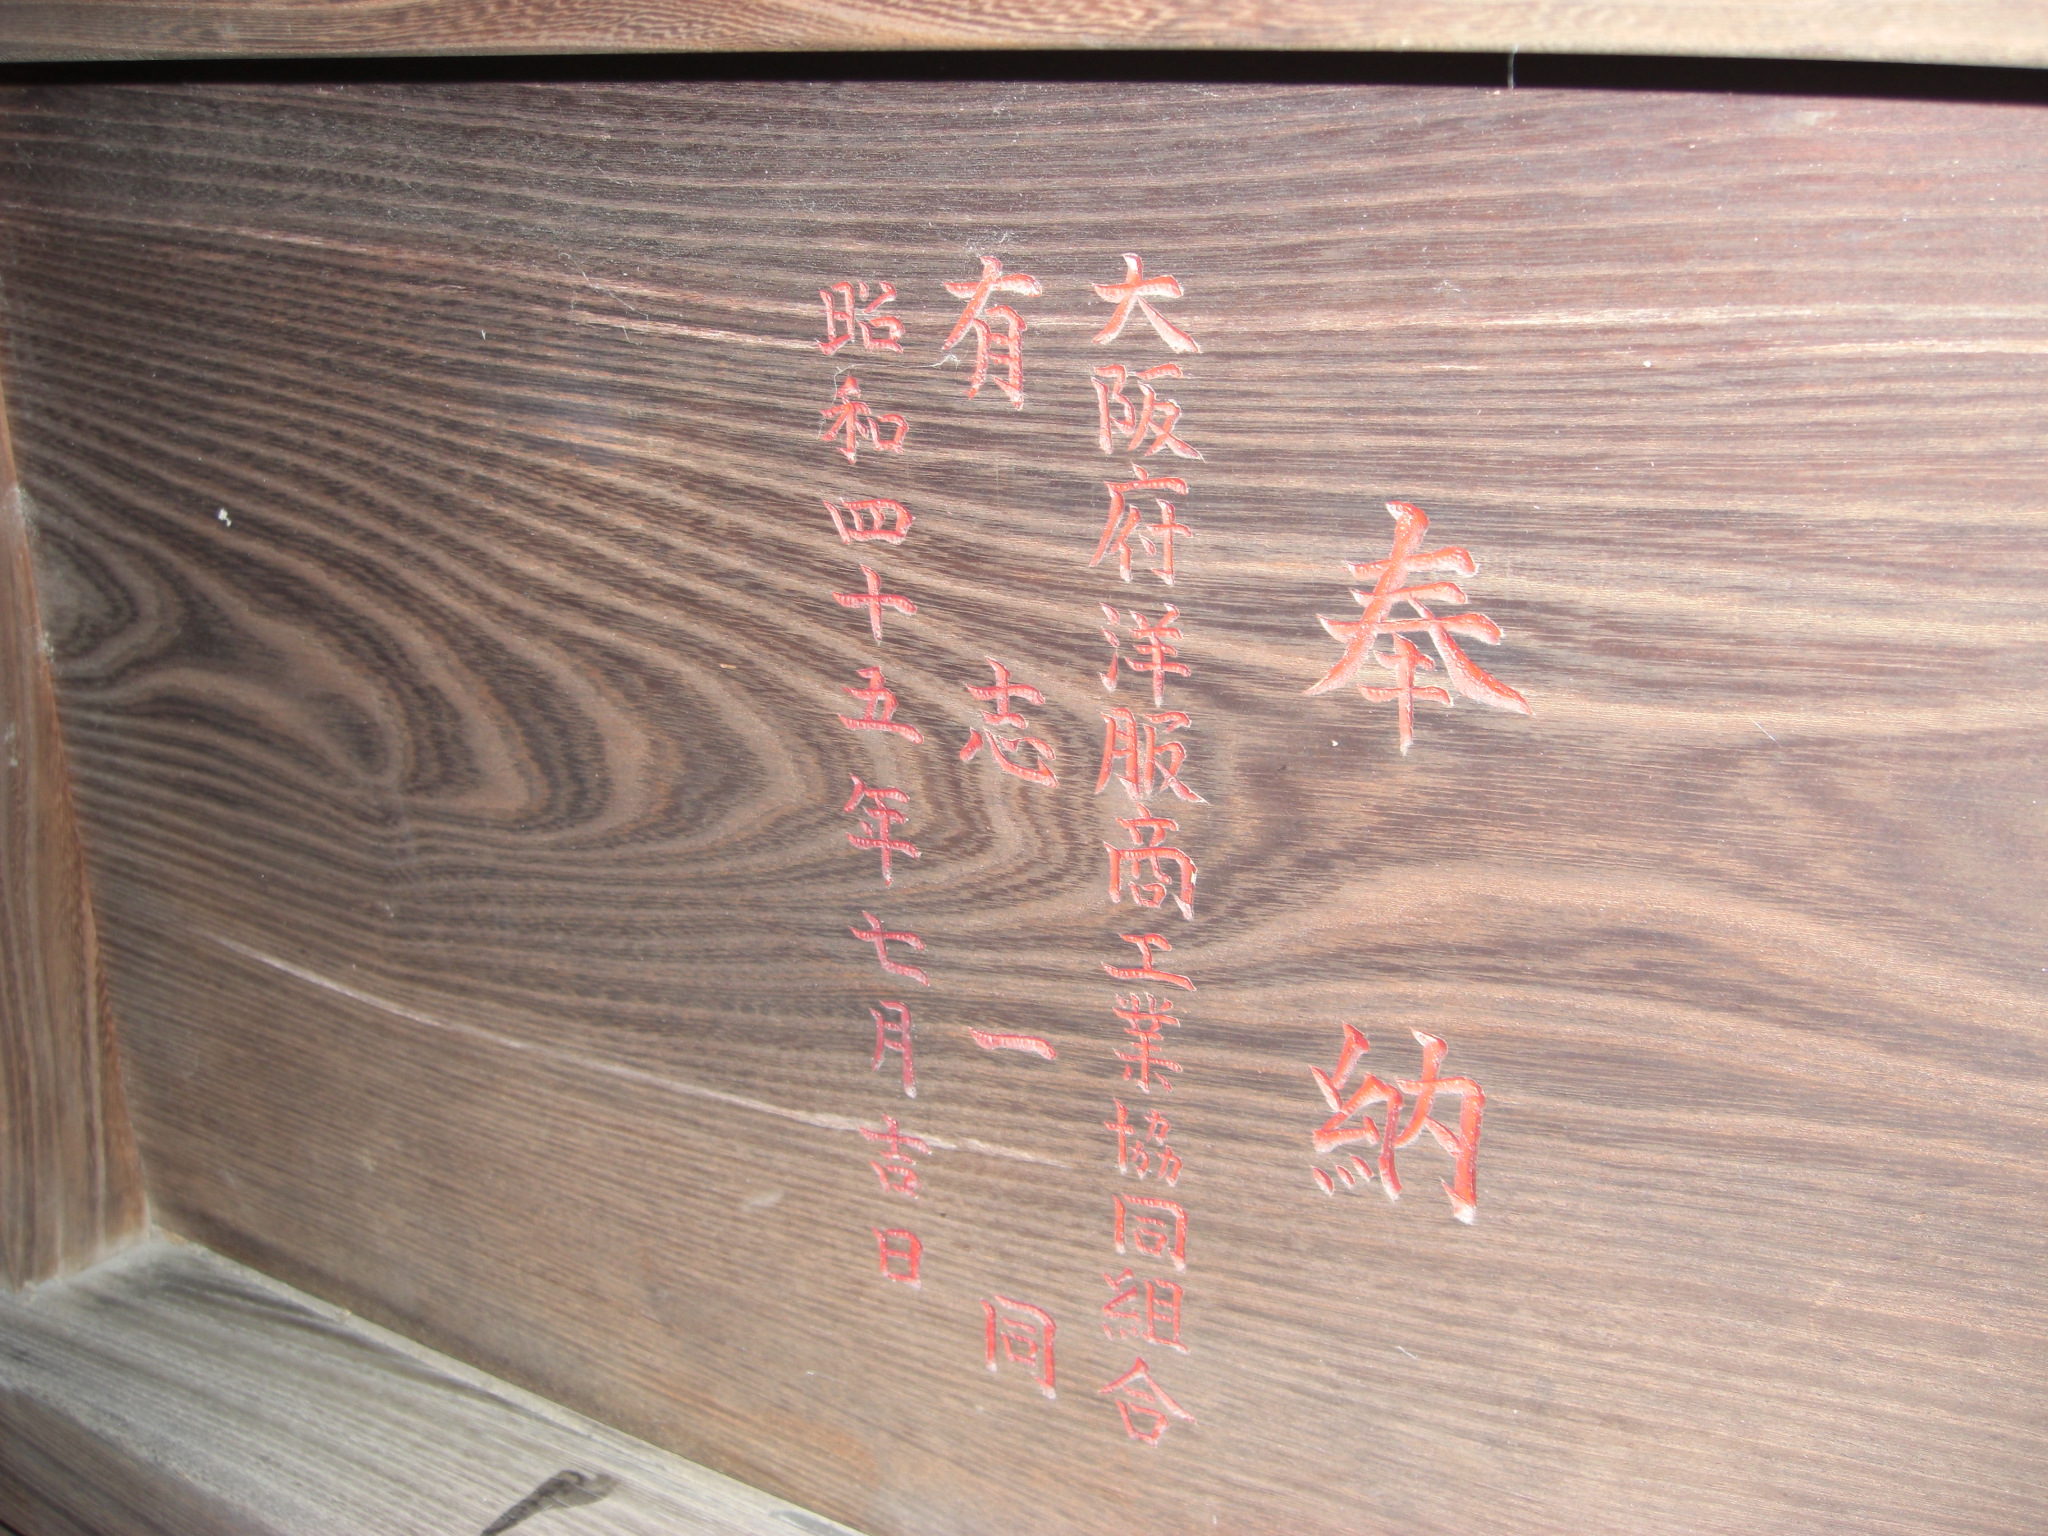 奉納
大阪府洋服商工業協同組合
有志一同
昭和四十五年七月吉日